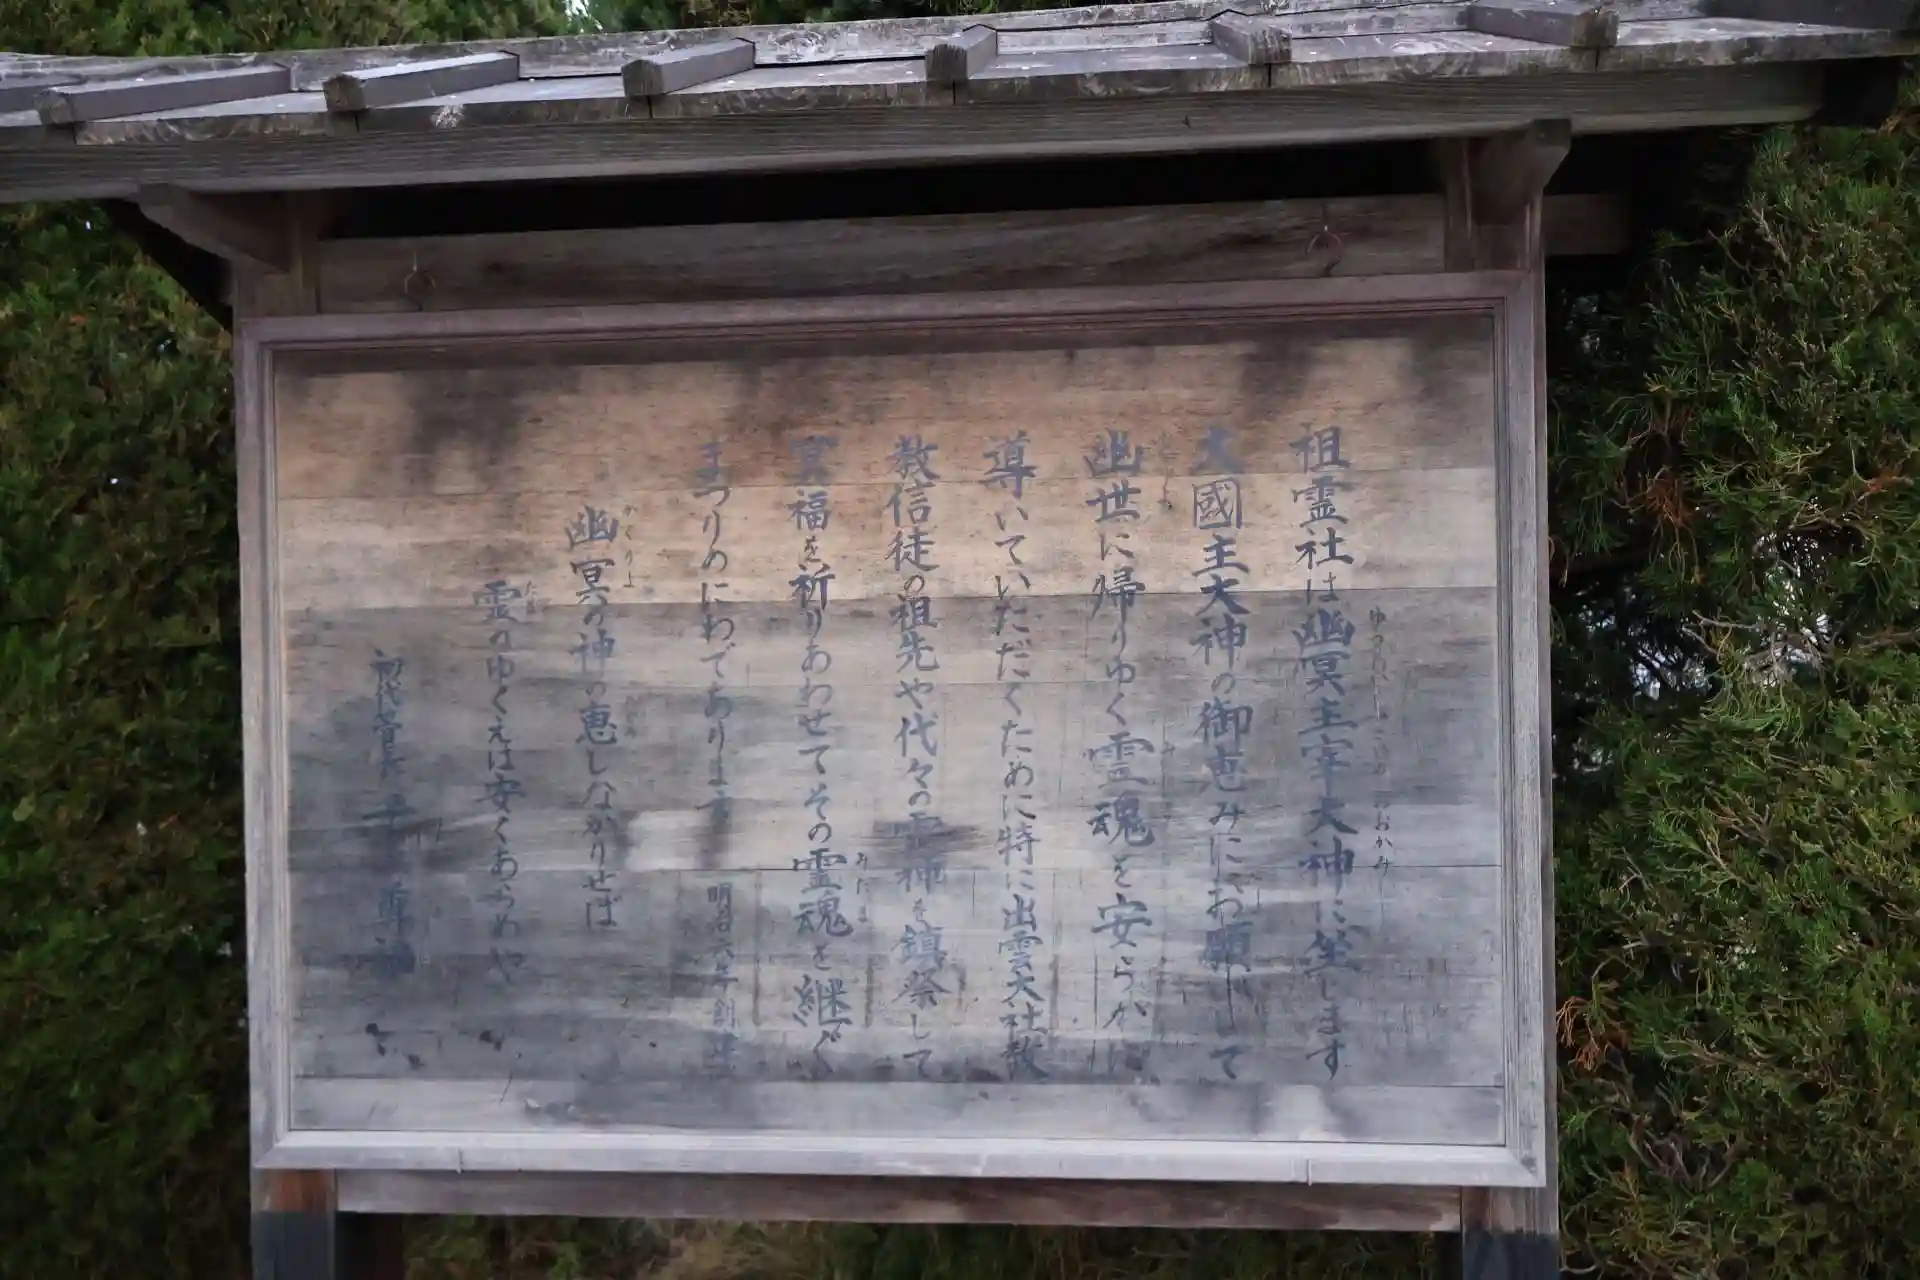 祖霊社は幽冥主宰大神に坐します
おおかみ
大國主大神の御恵みにお願いして
幽世に帰りゆく霊魂を安らかに
導いていただくために特に出雲大社教
教信徒の祖先や代々の霊神を鎮祭して
冥福を祈りあわせてその霊魂を継ぐ
みたま
まつりのにわであります
明治六年創建
幽冥の神の恵しなかりせば
かくりよ
霊のゆくえは安くあらめや
たま
初代管長 千 尊福